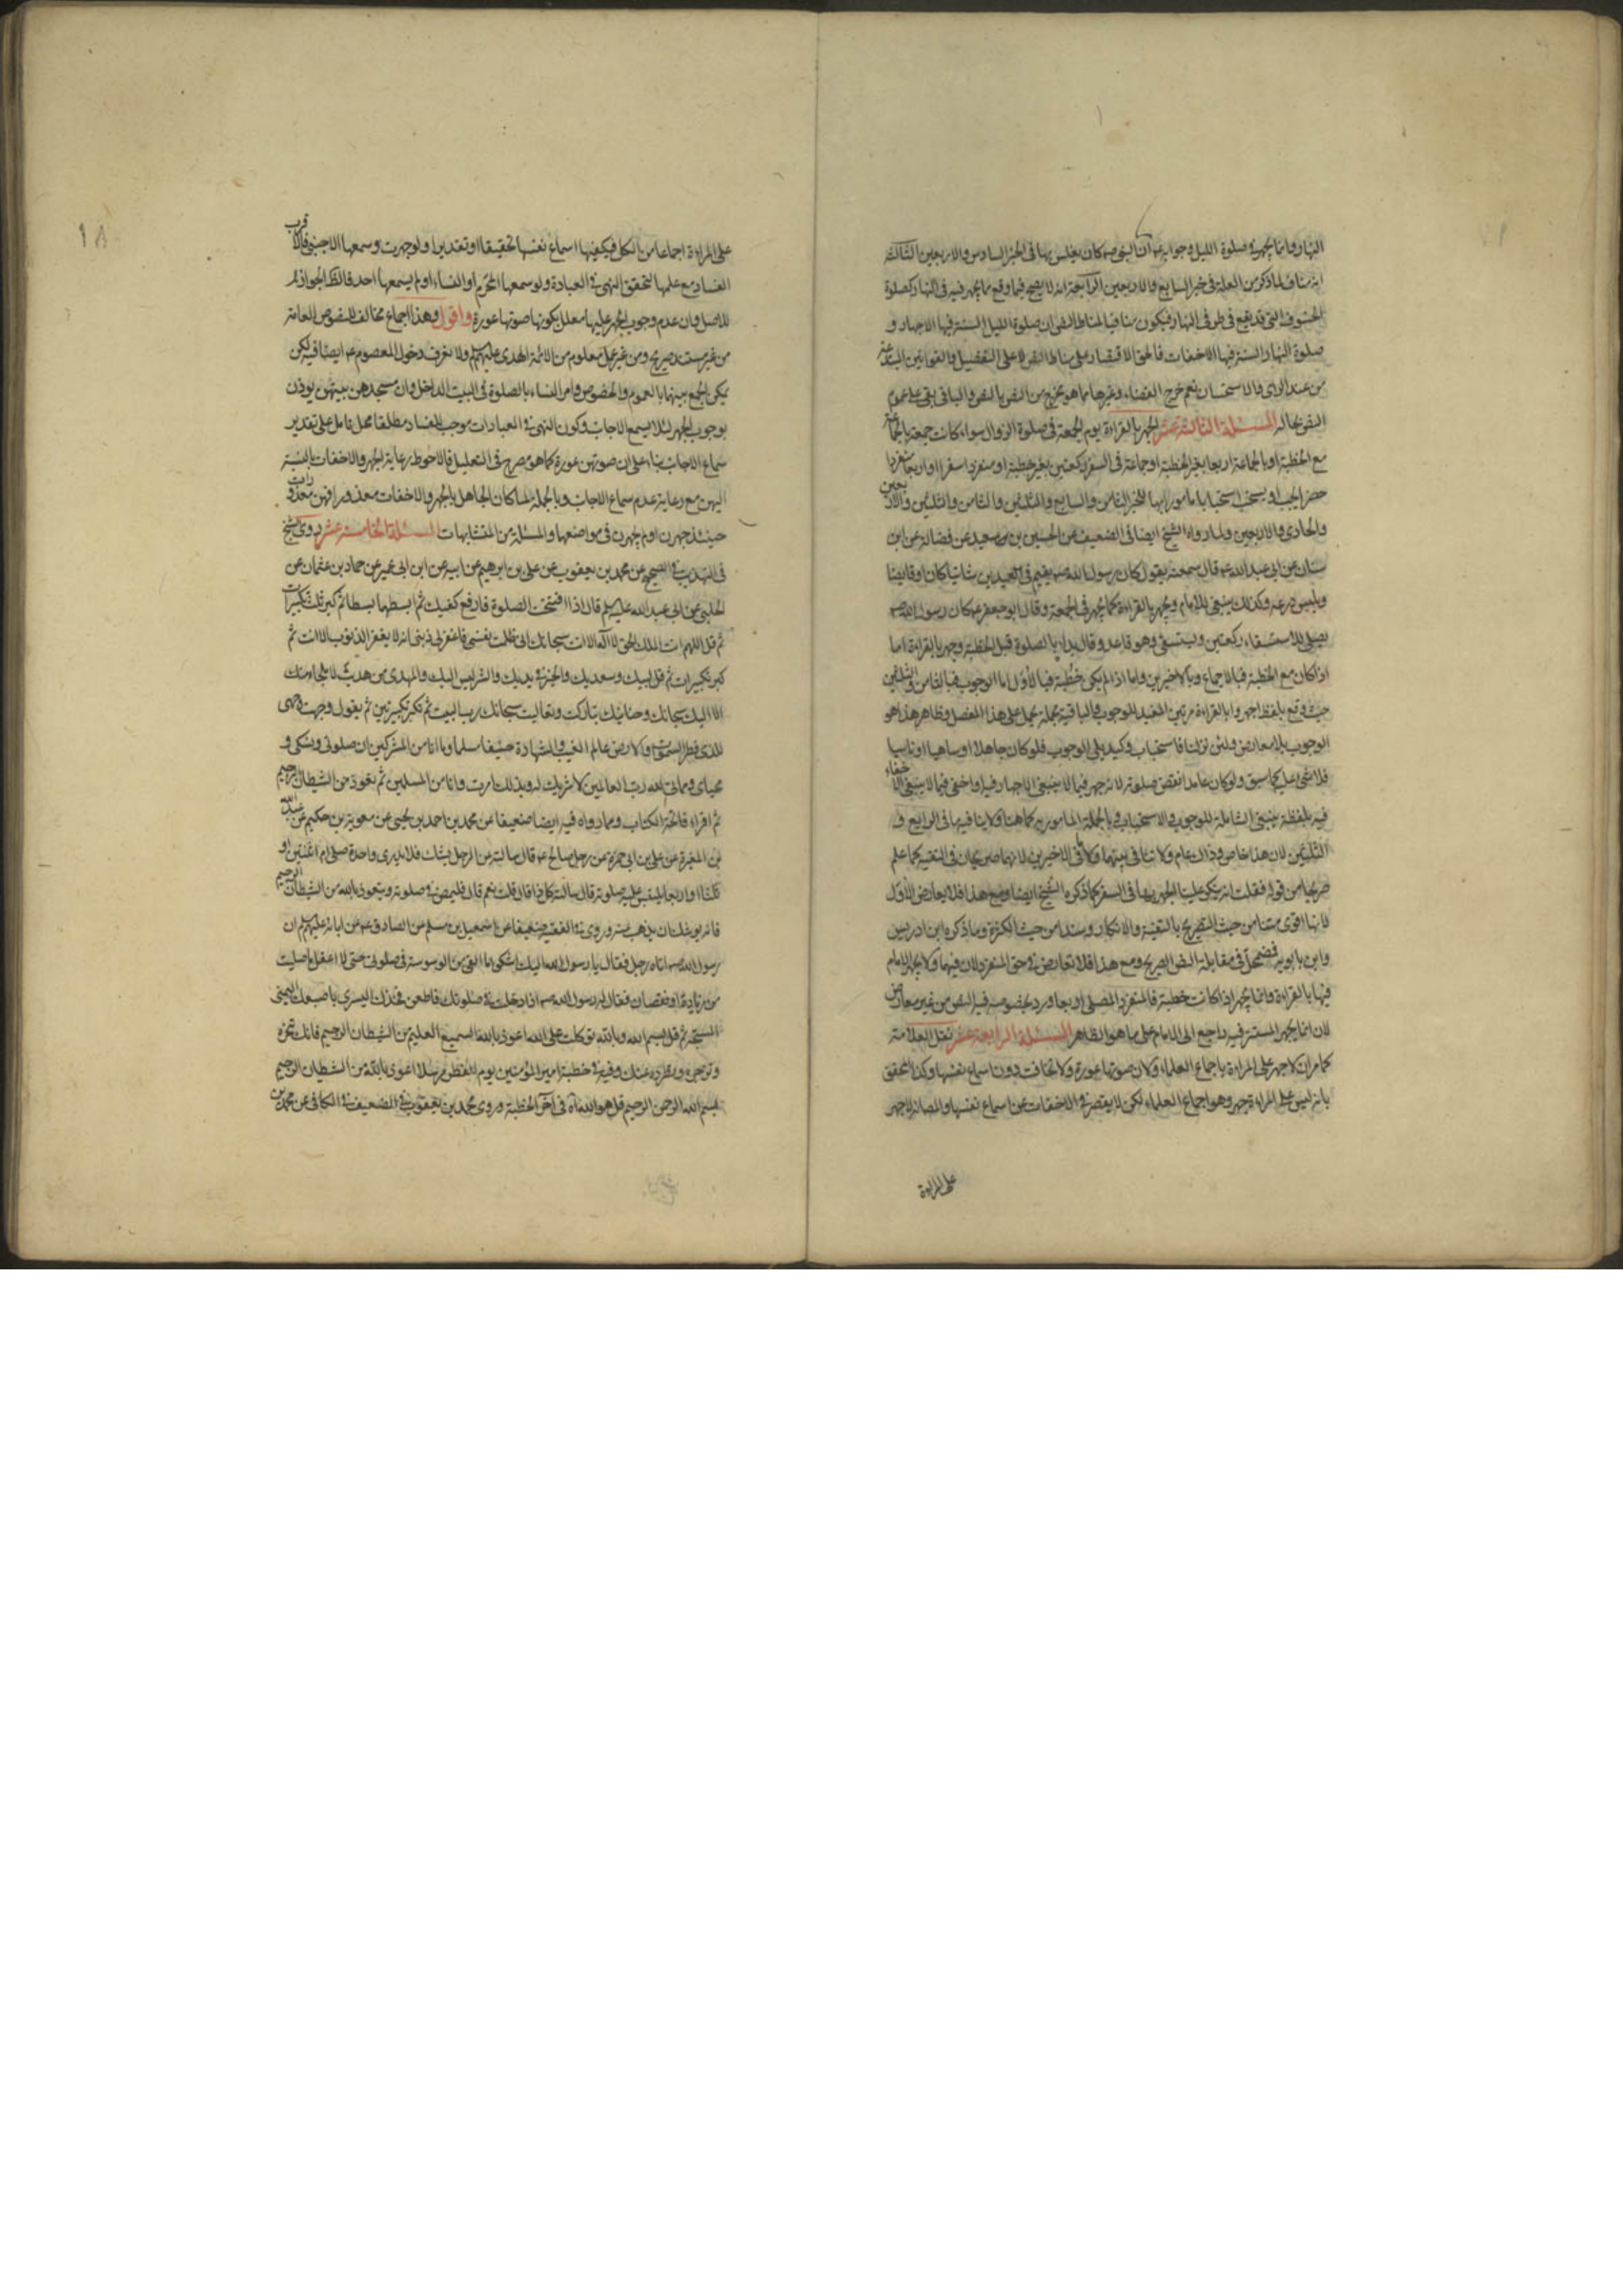 النهار وانما يجهر فى صلوة الليل وجوابه عم ان النبى صم كان يغلس بها فى الخبر السادس والاربعين الثالثة
انه مناف لما ذكر من العلة فى خبر السابع والاربعين الرابعة انه لا يصح فيما وقع مما يجهر فيه فى النهار كصلوة
الخسوف التى قد يقع فى طرفى النهار فيكون منافيا لمناط النص ان صلوة الليل السنة فيها الاجهار و
صلوة النهار السنة فيها الاخفات فالحق الاقتصار على مناط النص لا على التفصيل والقوانين المبتدعة
من عند الراى والاستحسان نعم خرج القضاء وغيرها مما هو مخرج من النص بالنص والباقى بقى على عموم
النص بحاله المسئلة الثالثة عشر الجهر بالقراءة يوم الجمعة فى صلوة الزوال سواء كانت جمعة بالجماعة
مع الخطبة او بالجماعة اربعا بغير الخطبة او جماعة فى السفر ركعتين بغير خطبة او منفردا سفرا او اربعا منفردا
حضرا يجب او يستحب استحبابا مامورا بها للخبر الثامن والسابع والثلثين والثامن والثلثين والاربعين
والحادى والاربعين ولما رواه الشيخ ايضا فى الضعيف عن الحسين بن سعيد عن فضالة عن ابن
سنان عن ابى عبد الله عم قال سمعته يقول كان رسول الله صم يعتم فى العيدين شاتيا كان او قايضا
ويلبس درعه وكذلك ينبغى للامام ويجهر بالقراءة كما يجهر فى الجمعة وقال ابو جعفر عم كان رسول الله صم
يصلى للاستسقاء ركعتين ويستسقى وهو قاعد وقال بدا بالصلوة قبل الخطبة وجهر بالقراءة اما
اذا كان مع الخطبة فبالاجماع وبالاخيرين واما اذا لم يكن خطبة فبالاول اما الوجوب فبالثامن والثلثين
حيث وقع بلفظ اجهروا بالقراءة مرتين المفيد للوجوب والباقية مجملة يحمل على هذا المفصل وظاهر هذا هو
الوجوب بلا معارض ولئن نزلنا فاستحباب وكيد يلى الوجوب فلو كان جاهلا او ساهيا او ناسيا
فلا شئ عليه كما سبق ولو كان عامدا نقض صلوته لانه جهر فيما لا ينبغى الاجهار فيه او اخفى فيما لا ينبغى الاخفاء
فيه بلفظة ينبغى الشاملة للوجوب والاستحباب وبالجملة المامور به كما هنا ولا ينافيها فى الرابع و
الثلثين لان هذا خاص وذاك عام ولا تنافى بينهما ولا ما فى الاخيرين لانهما صريحان فى التقية كما علم
صريحا من قوله فقلت انه ينكر علينا الجهر بها فى السفر كما ذكره الشيخ ايضا ومع هذا فلا يعارض الاول
لانها اقوى متنا من حيث التصريح بالتقية والانكار وسندا من حيث الكثرة وما ذكره ابن ادريس
وابن بابويه فمضمحل فى مقابلة النص الصريح ومع هذا فلا تعارض فى حق المنفرد لان فيهما ولا يجهر الامام
فيها بالقراءة وانما يجهر اذا كانت خطبة فالمنفرد المصلى اربعا ورد بخصوصه فيه النص من غير معارض
لان انما يجهر المستتر فيه راجع الى الامام على ما هو الظاهر المسئلة الرابعة عشر نقل العلامة
كما مر ان لا جهر على المراءة باجماع العلماء ولان صوتها عورة ولا تخافت دون اسماع نفسها وكذا المحقق
بانه ليس على المراءة جهر وهو اجماع العلماء لكن لا يقصر فى الاخفات عن اسماع نفسها والصانه لا جهر
على المراءة
على المراءة اجماعا من الكل فيكفيها اسماع نفسها تحقيقا او تقديرا ولو جهرت وسمعها الاجنبى فالاقرب
الفساد مع علمها لتحقق النهى فى العبادة ولو سمعها المحرم او النساء او لم يسمعها احد فالظ الجواز لم
للاصل وان عدم وجوب الجهر عليها معلل بكونها صوتها عورة واقول وهذا اجماع مخالف للنصوص العامة
من غير مستند صريح ومن غير عمل معلوم من الائمة الهدى عليهم السلم ولا نعرف دخول المعصوم عم ايضا فيه لكن
يمكن الجمع بينهما بالعموم والخصوص وامر النساء بالصلوة فى البيت الداخل وان مسجدهن بيتهن يوذن
بوجوب الجهر لئلا يسمع الاجانب وكون النهى فى العبادات موجب للفساد مطلقا محل تامل على تقدير
سماع الاجانب بناء على ان صوتهن عورة كما هو مصرح فى التعليل فالاحوط رعاية الجهر والاخفات بالنسبة
اليهن مع رعاية عدم سماع الاجانب وبالجملة لما كان الجاهل بالجهر والاخفات معذورا فهن معذورات
حينئذ جهرت او لم يجهرن فى مواضعها والمسئلة من المتشابهات المسئلة الخامسة عشر روى الشيخ
فى التهذيب فى الصحيح عن محمد بن يعقوب عن على بن ابرهيم عن ابيه عن ابن ابى عمير عن حماد بن عثمان عن
الحلبى عن ابى عبد الله عليه السلم قال اذا افتتحت الصلوة فارفع كفيك ثم ابسطهما بسطا ثم كبر ثلث تكبيرات
ثم قل اللهم انت الملك الحق لا اله الا انت سبحانك انى ظلمت نفسى فاغفر لى ذنبى انه لا يغفر الذنوب الا انت ثم
كبر تكبيرات ثم قل لبيك وسعديك والخير فى يديك والشر ليس اليك والمهدى من هديت لا ملجاء منك
الا اليك سبحانك وحنانيك تباركت وتعاليت سبحانك رب البيت ثم تكبر تكبيرتين ثم يقول وجهت وجهى
للذى فطر السموات والارض عالم الغيب والشهادة حنيفا مسلما وما انا من المشركين ان صلوتى ونسكى و
محياى ومماتى لله رب العالمين لا شريك له وبذلك امرت وانا من المسلمين ثم تعوذ من الشيطان الرجيم
ثم اقراء فاتحة الكتاب ومما رواه فيه ايضا ضعيفا عن محمد بن احمد بن يحيى عن معوية بن حكيم عن عبد الله
بن المغيرة عن على بن ابى حمزة عن رجل صالح عم قال سالته عن الرجل يشك فلا يدرى واحدة صلى ام اثنتين او
ثلثا او اربعا يلتبس عليه صلوته قال سالته كل ذا قال قلت نعم قال فليمض فى صلوته ويتعوذ بالله من الشيطان الرجيم
فانه يوشك ان يذهب عنه وروى فى الفقيه ضعيفا عن اسمعيل بن مسلم عن الصادق عم عن ابائه عليهم السلم ان
رسول الله صم اتاه رجل فقال يا رسول الله اليك اشكو ما القى من الوسوسة فى صلوتى حتى لا اعقل ما صليت
من زيادة او نقصان فقال له رسول الله صم اذا دخلت فى صلوتك فاطعن فخذك اليسرى باصبعك اليمنى
المسبحة ثم قل بسم الله وبالله توكلت على الله اعوذ بالله السميع العليم من الشيطان الرجيم فانك تنحره
وتزجره وتطرده عنك وفيه فى خطبة امير المؤمنين يوم الفطر مرسلا اعوذ بالله من الشيطان الرجيم
بسم الله الرحمن الرحيم قل هو الله اه فى آخر الخطبة وروى محمد بن يعقوب فى الضعيف فى الكافى عن محمد بن